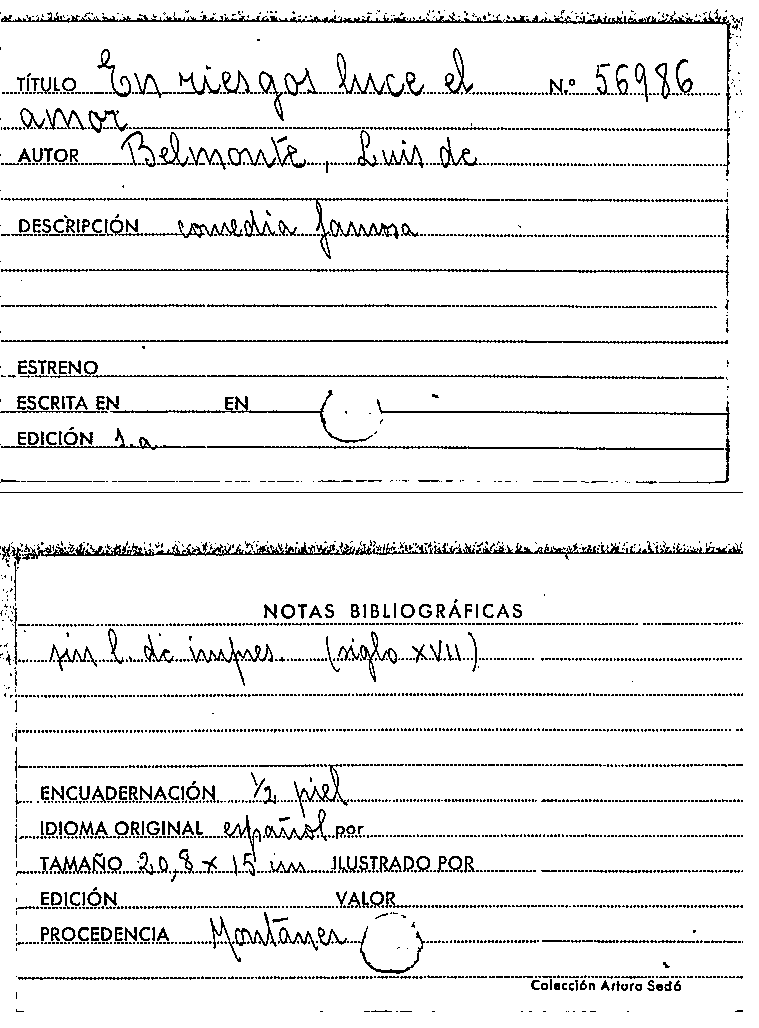 TÍTULO En riesgos luce el N.º 56986
amor
AUTOR Belmonte, Luis de
DESCRIPCIÓN comedia famosa
ESTRENO
ESCRITA EN EN
EDICIÓN s.a
NOTAS BIBLIOGRÁFICAS
sin l. de impres. (siglo XVII)
ENCUADERNACIÓN ½ piel
IDIOMA ORIGINAL español por
TAMAÑO 20,8 x 15 cm ILUSTRADO POR
EDICIÓN VALOR
PROCEDENCIA Montaner
Colección Arturo Sedó